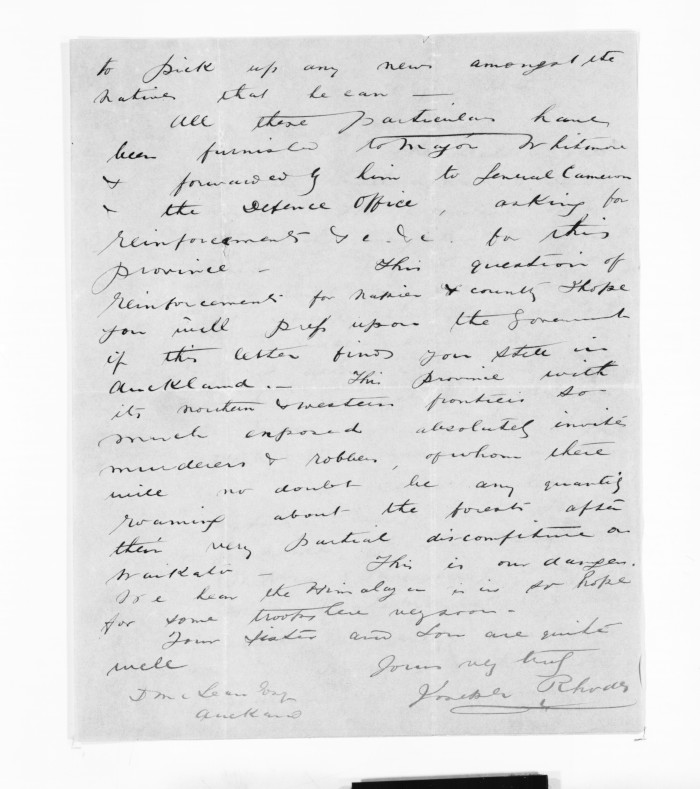 to pick up any news amongst the
natives that he can —
All these particulars have
been furnished to Major Whitmore
& forwarded by him to General Cameron
& the Defence Office, asking for
reinforcements &c. &c. for this
province — This question of
reinforcements for Napier & county I hope
you will press upon the Government
if this letter finds you still in
Auckland. — This Province with
its northern & western frontiers so
much exposed absolutely invites
murderers & robbers, of whom there
will no doubt be any quantity
roaming about the forests after
their very partial discomfiture on
Waikato — This is our danger.
We hear the Himalaya is in so hope
for some troops here very soon —
Your sister and Son are quite
well
Yours very truly
Joseph Rhodes
D McLean Esq
Auckland